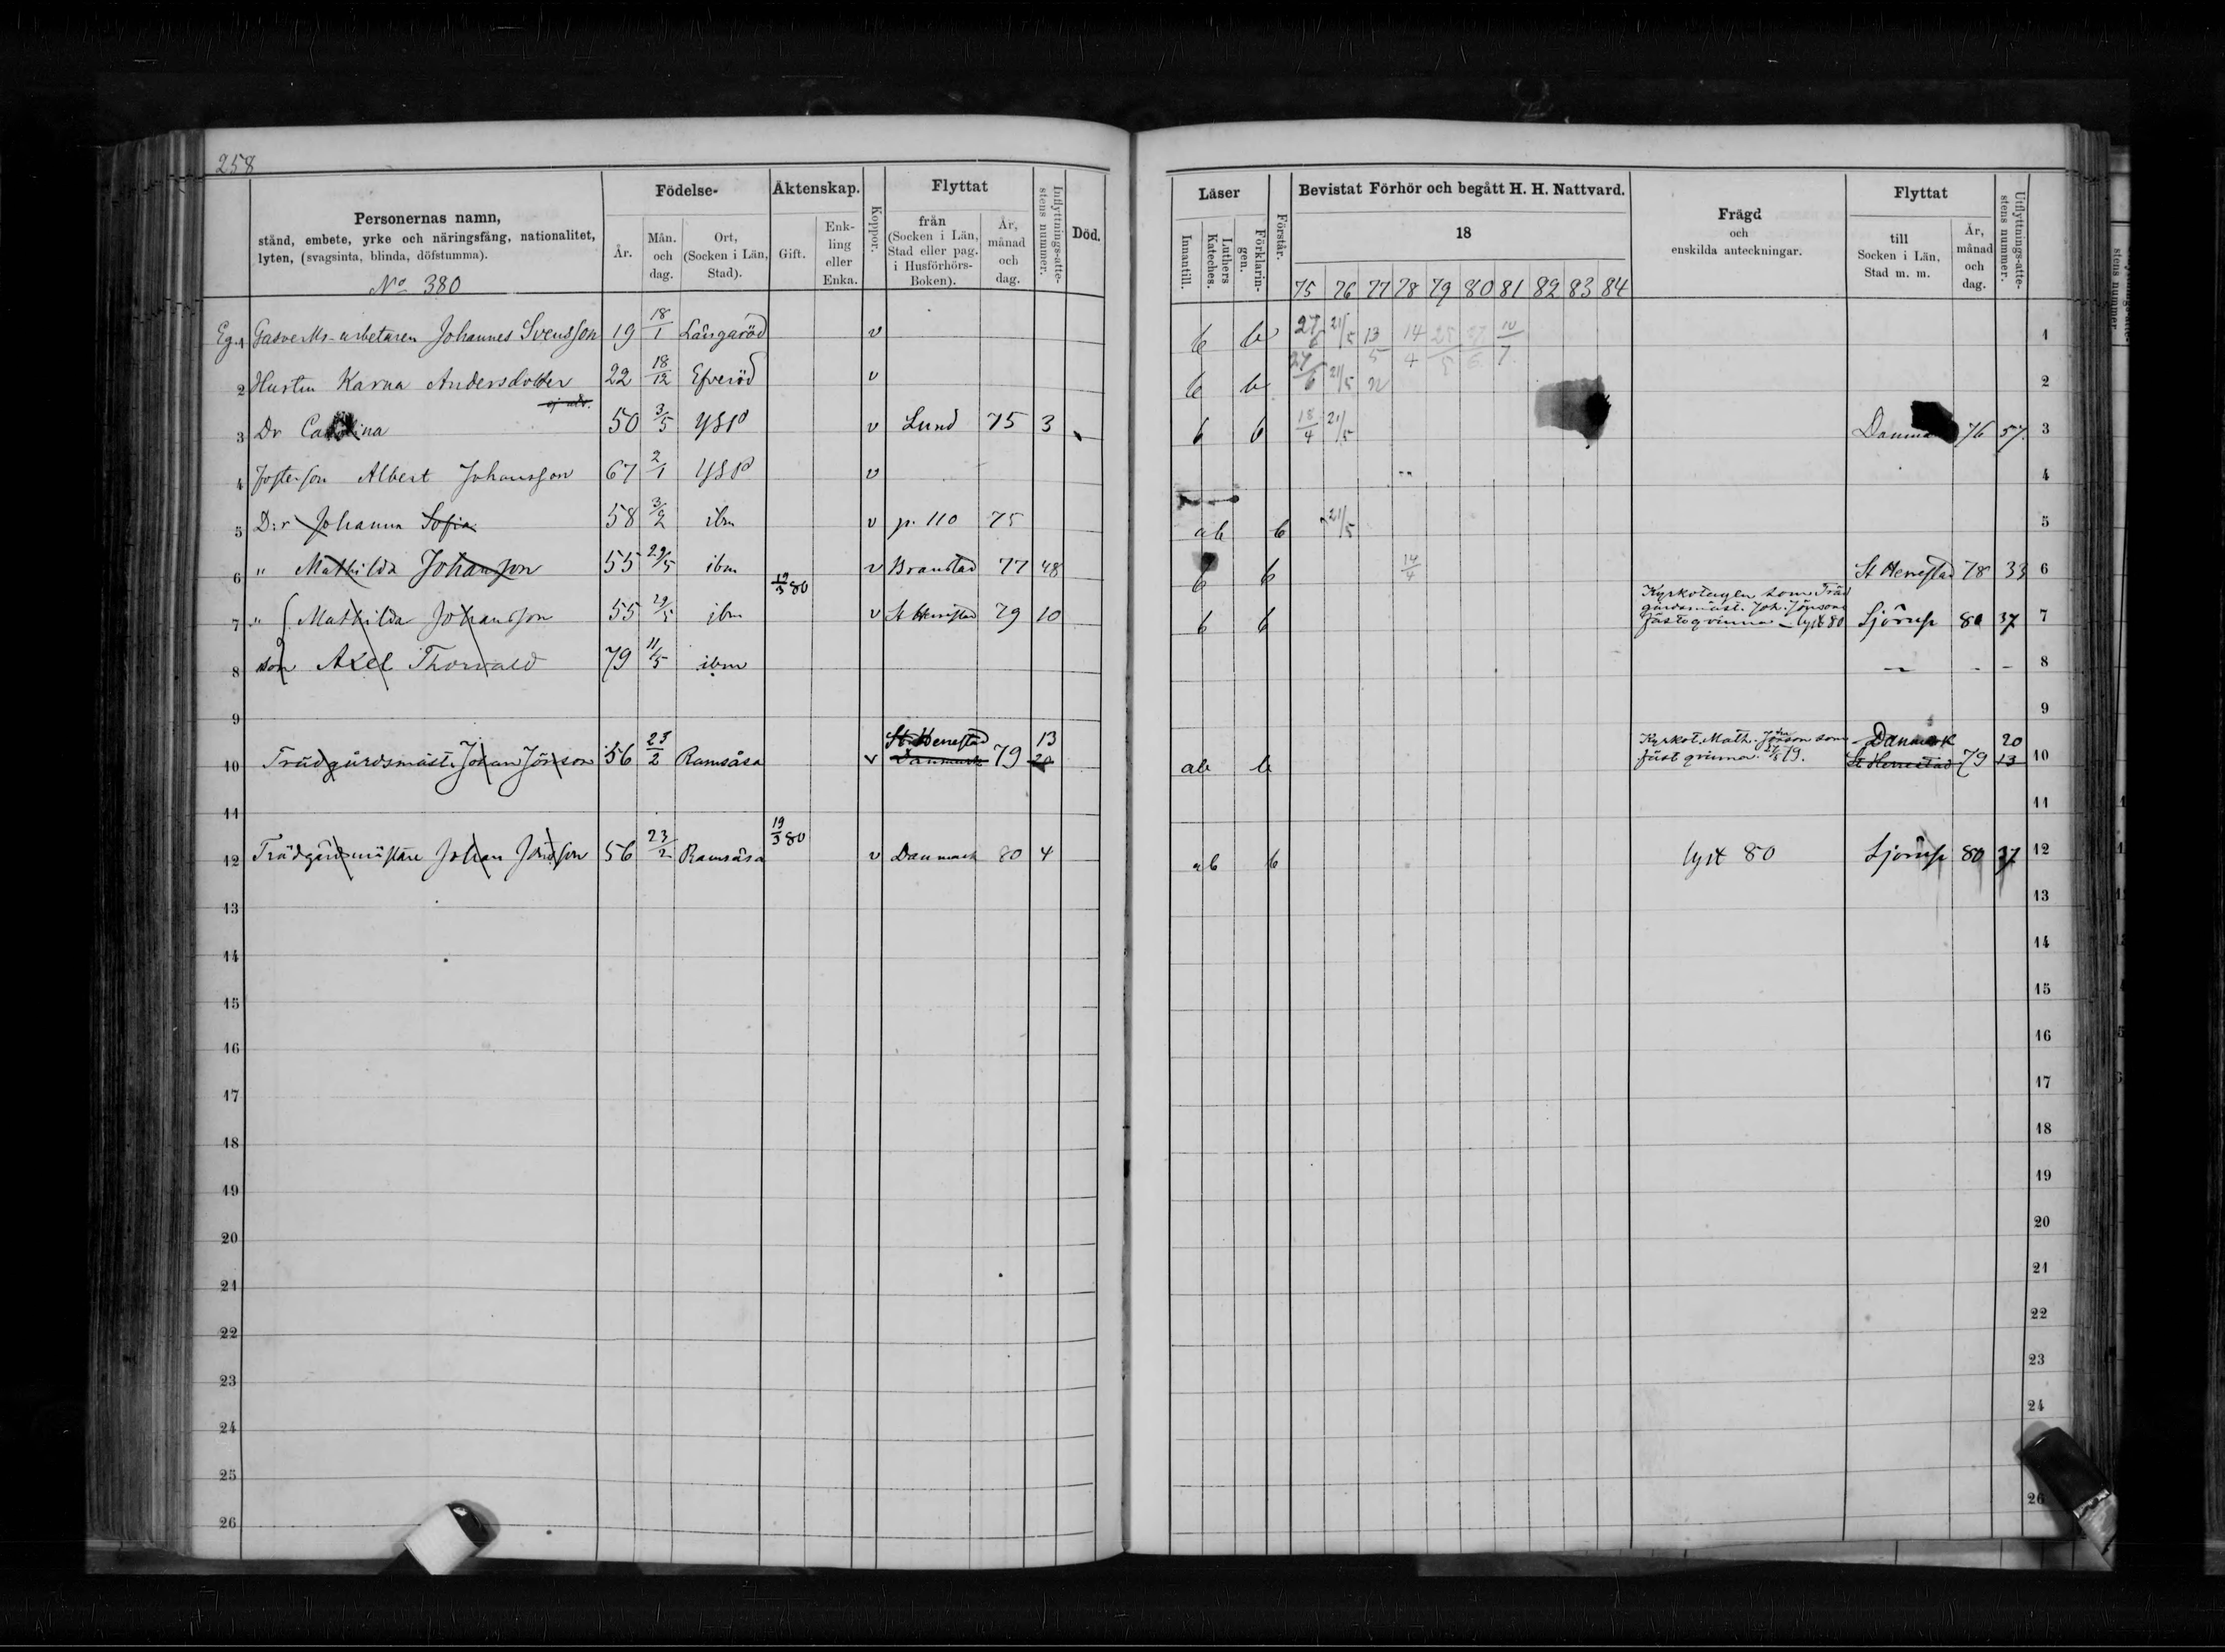 258
Personernas namn,
stånd, embete, yrke och näringsfång, nationalitet,
lyten, (svagsinta, blinda, döfstumma).
No 380
Födelse-
År.
Mån. och dag.
Ort, (Socken i Län, Stad).
Äktenskap.
Gift.
Enk- ling eller Enka.
Koppor.
Flyttat
från (Socken i Län, Stad eller pag. i Husförhörs- Boken).
År, månad och dag.
Inflyttnings-atte- stens nummer.
Död.
Läser
Innantill.
Luthers Kateches.
Förklarin- gen.
Förstår.
Bevistat Förhör och begått H. H. Nattvard.
18
75 76 77 78 79 80 81 82 83 84
Frägd
och
enskilda anteckningar.
Flyttat
till Socken i Län, Stad m. m.
År, månad och dag.
Utflyttnings-atte- stens nummer.
Eg. 1 Johannes Svensson 19 18/1 Långaröd v b b 27/6 21/5 13/5 14/4 25/5 27/6 10/7 1
2 Hustru Karna Andersdotter 22 18/12 Efveröd v b b 27/6 21/5 n 2
3 Dr Carolina 50 3/5 YSP v Lund 75 3 b b 18/4 21/5 Danma 76 57. 3
4 Fosterson Albert Johansson 67 2/1 YSP v 4
5 D:r Johanna Sofia 58 3/2 ibm v p. 110 75 ab b 21/5 5
6 " Mathilda Johanson 55 29/5 ibm v Branstad 77 48 b b 14/4 St Herrestad 78 33 6
19/3 80
Kyrkotagen som Träd
gårdsmäst. Joh. Jönsons
fästeqvinna - lyst 80
7 " Mathilda Johansson 55 29/5 ibm v St Herrestad 79 10 b b Sjörup 80 37 7
8 son Axel Thorvald 79 11/5 ibm - - 8
9 9
St. Herrestad 13
Kyrkot. Math. Joh:son som
fästqvinna 27/5 79.
Danmark 20
10 Trädgårdsmäst. Johan Jönson 56 23/2 Ramsåsa v Danmark 79 20 ab b St Herrestad 79 13 10
11 11
19/3 80
12 Trädgårdsmästare Johan Jönsson 56 23/2 Ramsåsa v Danmark 80 4 ab b lyst 80 Sjörup 80 37 12
13 13
14 14
15 15
16 16
17 17
18 18
19 19
20 20
21 21
22 22
23 23
24 24
25
26 26